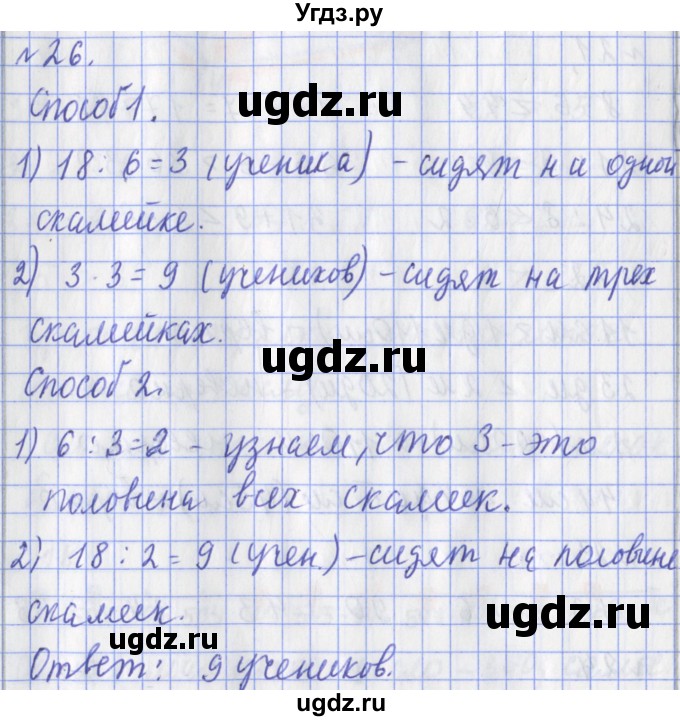 Угдз.ру
№26.
Способ 1.
ugdz.ru
1) 18 : 6 = 3 (ученика) - сидят на одной
скамейке.
2) 3 · 3 = 9 (учеников) - сидят на трех
скамейках.
ugdz.ru
Способ 2.
1) 6 : 3 = 2 - узнаем, что 3 - это
половина всех скамеек.
2) 18 : 2 = 9 (учен.) - сидят на половине
ugdz.ru
скамеек.
ugdz.ru
Ответ: 9 учеников.
ugdz.ru